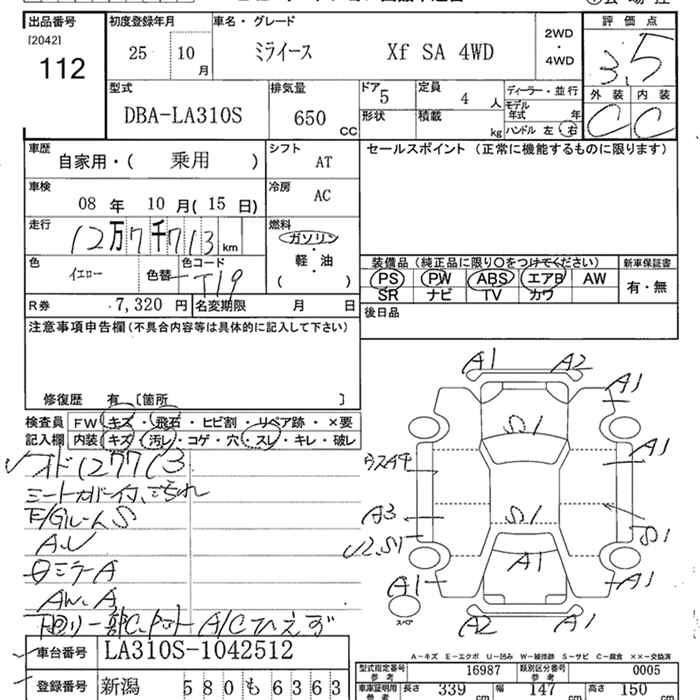 出品番号 初度登録年月 車名・グレード 評価点
[2042] 112
25 10月 ミライース Xf SA 4WD 2WD・4WD 3.5
型式 排気量 ドア 5 定員 4人 ディーラー・並行 外装 内装
DBA-LA310S 650CC 形状 積載 kg モデル年式 年 C C
ハンドル 左 右
車歴 シフト セールスポイント (正常に機能するものに限ります)
自家用・( 乗用 ) AT
車検 冷房
08年 10月(15日) AC
走行 燃料
12万7千713km ガソリン
軽・油
( )
色 色替 色コード
イエロー T19
装備品(純正品に限り〇をつけてください) 新車保証書
PS PW ABS エアB AW 有・無
SR ナビ TV カワ
R券 7,320円 名変期限 月 日 後日品
注意事項申告欄(不具合内容等は具体的に記入して下さい)
修復歴 有 [箇所 ]
検査員 FW キズ・飛石・ヒビ割・リペア跡・×要
記入欄 内装 キズ・汚レ・コゲ・穴・スレ・キレ・破レ
127713
シートカバー付、
A.U
A
AW.A
A1 A2
A1
S1
A1
A3 S1
S1
A1
A1 A1
A2 A1
スペア
A-キズ E-エクボ U-凹み W-補修跡 S-サビ C-腐食 ××-交換済
車台番号 LA310S-1042512
型式指定番号 参考 16987 類別区分番号 参考 0005
登録番号 新潟 580 も 6363
車庫証明用 参考 長さ 339cm 幅 147cm 高さ 150cm